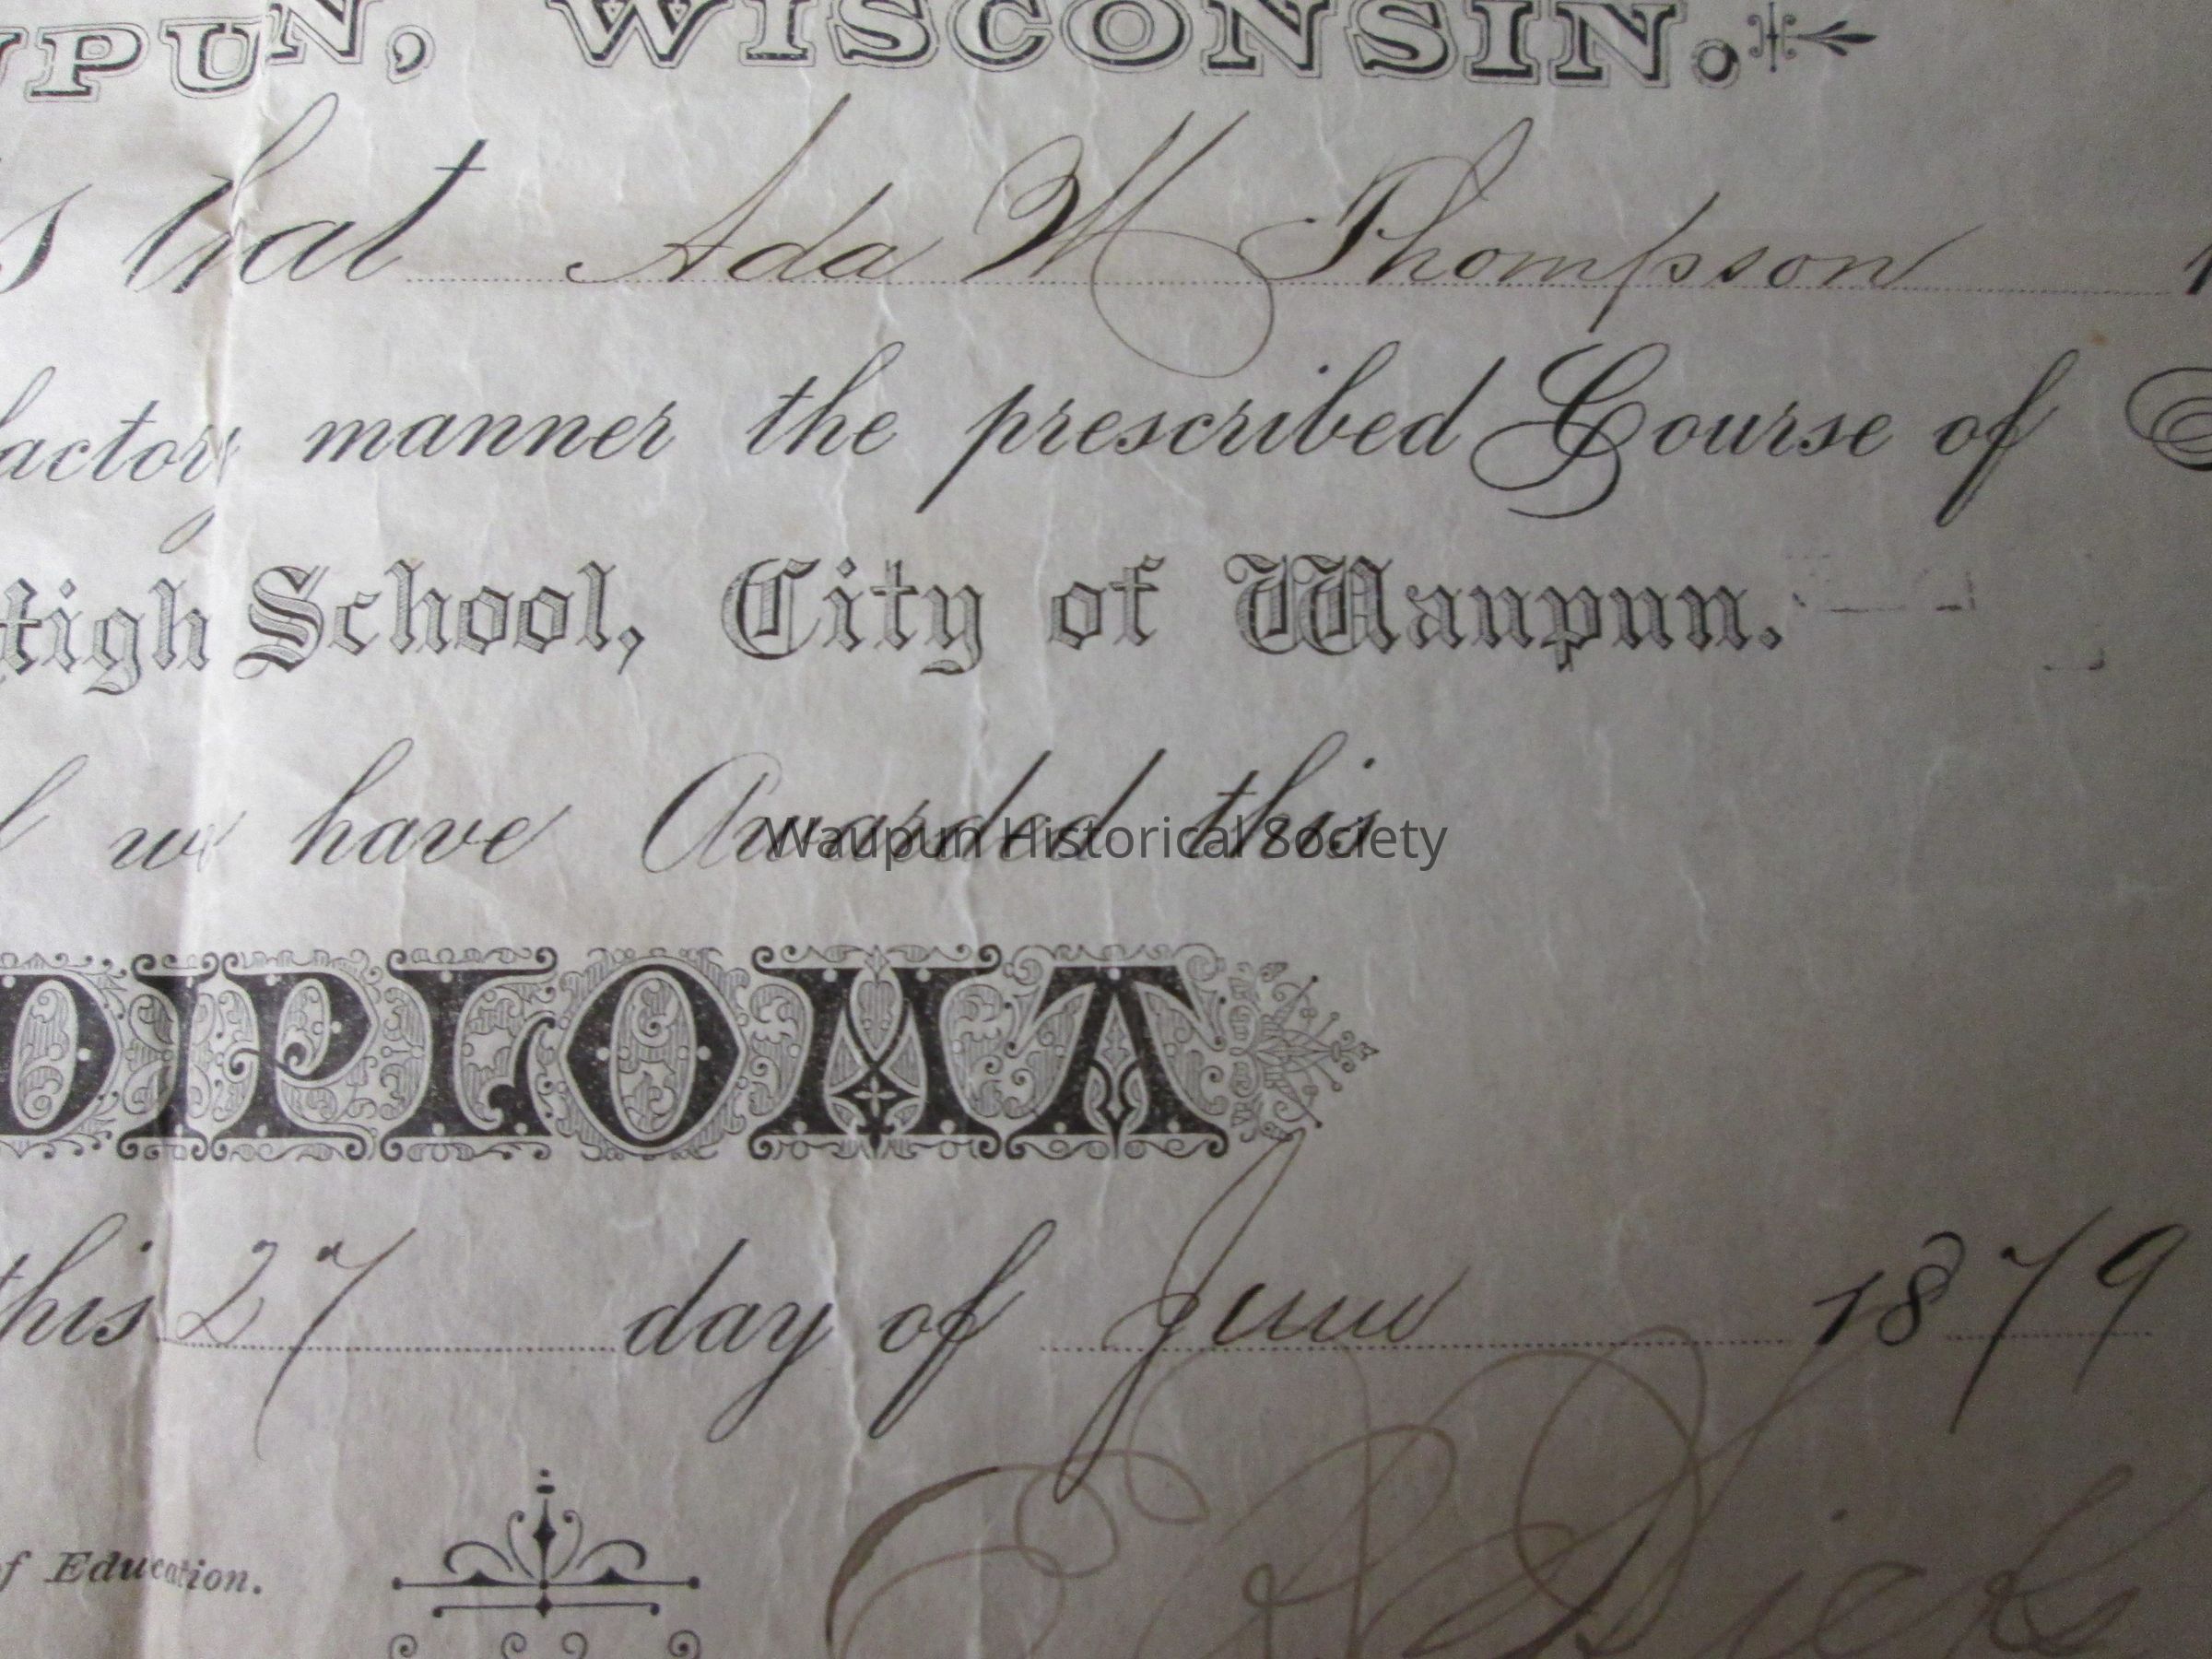 UPUN, WISCONSIN.
s that Ada M Thompson
factory manner the prescribed Course of
High School, City of Waupun.
we have Awarded this
Waupun Historical Society
DIPLOMA
this 27 day of June 1879
of Education.
Dick